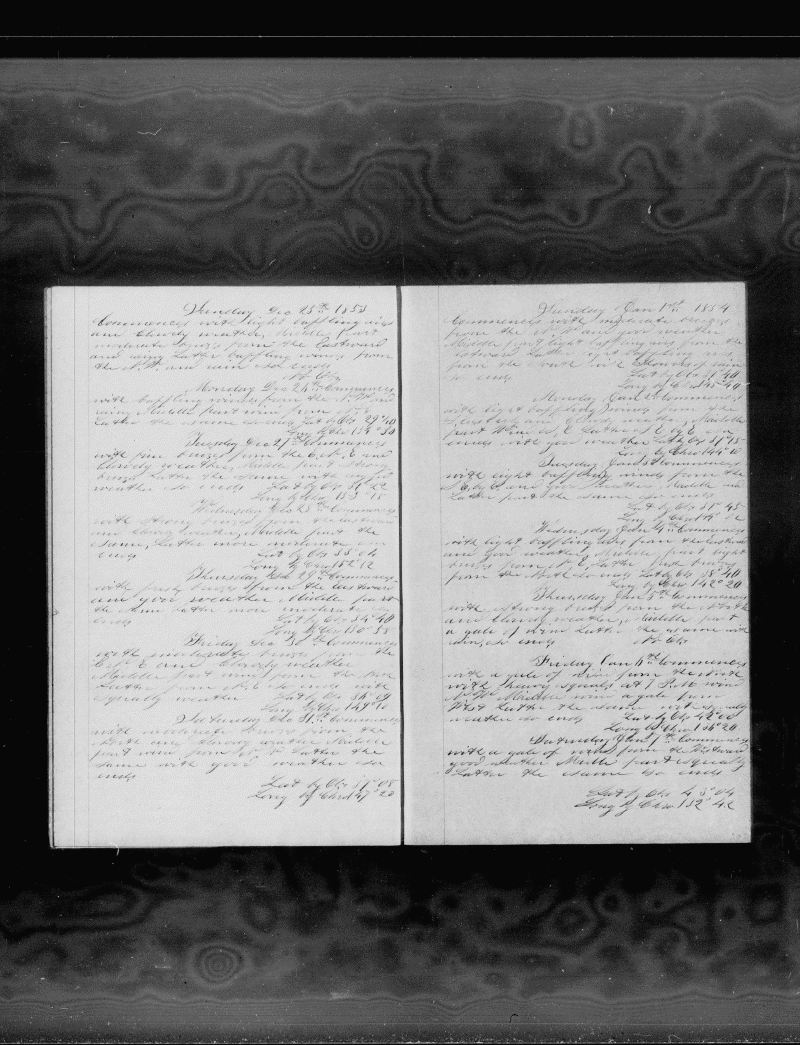 Sunday Dec 25th 1853
Commences with light baffling airs
and Cloudy weather, Middle part
moderate breezes from the Eastward
and rainy Latter baffling winds from
the N.W. and rain so ends
No Obs
Monday Dec 26th Commences
with baffling winds from the N.W. and
rainy Middle part wind from N.
Latter the same so ends Lat by Obs 29° 40
Long by Chro 154° 30
Tuesday Dec 27th Commences
with fine breezes from the E.N.E and
Cloudy weather, Middle part strong
breezes Latter the same with
weather so ends Lat by Obs 31° 22
Long by Chro 153° 18
Wednesday Dec 28th Commences
with strong breezes from the eastward
and Cloudy weather, Middle part the
same, Latter more moderate so
ends Lat by Obs 33° 04
Long by Chro 152° 12
Thursday Dec 29th Commences
with fresh breezes from the eastward
and good weather, Middle part
the same latter more moderate so
ends Lat by Obs 34° 40
Long by Chro 150° 38
Friday Dec 30th Commences
with moderate breezes from the
E.N.E and Cloudy weather
Middle part wind from the
Latter from N.E so ends with
squally weather Lat by Obs 36° 19
Long by Chro 149° 10
Saturday Dec 31st Commences
with moderate breezes from the
North and Cloudy weather Middle
part wind from Latter the
same with good weather so
ends
Lat by Obs 37° 08
Long by Chro 147° 20
Sunday Jan 1st 1854
Commences with moderate breezes
from the and good weather
Middle part light baffling airs from the
eastward Latter light baffling airs
from the South with Showers of rain
so ends Lat by Obs 37° 40
Long by Chro 145° 40
Monday Jan 2 Commences
with light baffling winds from the
and weather, Middle
part Wind Latter E by E so
ends with good weather Lat by Obs 37° 15
Long by Chro 144° 10
Tuesday Jan 3d Commences
with light baffling winds from the
and good weather Middle and
Latter part the same so ends
Lat by Obs 37° 45
Long by Chro
Wednesday Jan 4th Commences
with light baffling airs from the
and good weather, Middle part light
breezes from N.E, Latter fresh breezes
from the North so ends Lat by Obs 38° 40
Long by Chro 142° 20
Thursday Jan 5th Commences
with strong breezes from the North
and Cloudy weather, Middle part
a gale of wind Latter the same with
rain, so ends No Obs
Friday Jan 6th Commences
with a gale of wind from the North
with heavy squalls at 7 P.M wind
Middle wind a gale from
West Latter the same with squally
weather so ends Lat by Obs 42° 00
Long by Chro 136° 20
Saturday Jan 7th Commences
with a gale of wind from the Westward
good weather Middle part squally
Latter the same so ends
Lat by Obs 43° 04
Long by Chro 132° 42